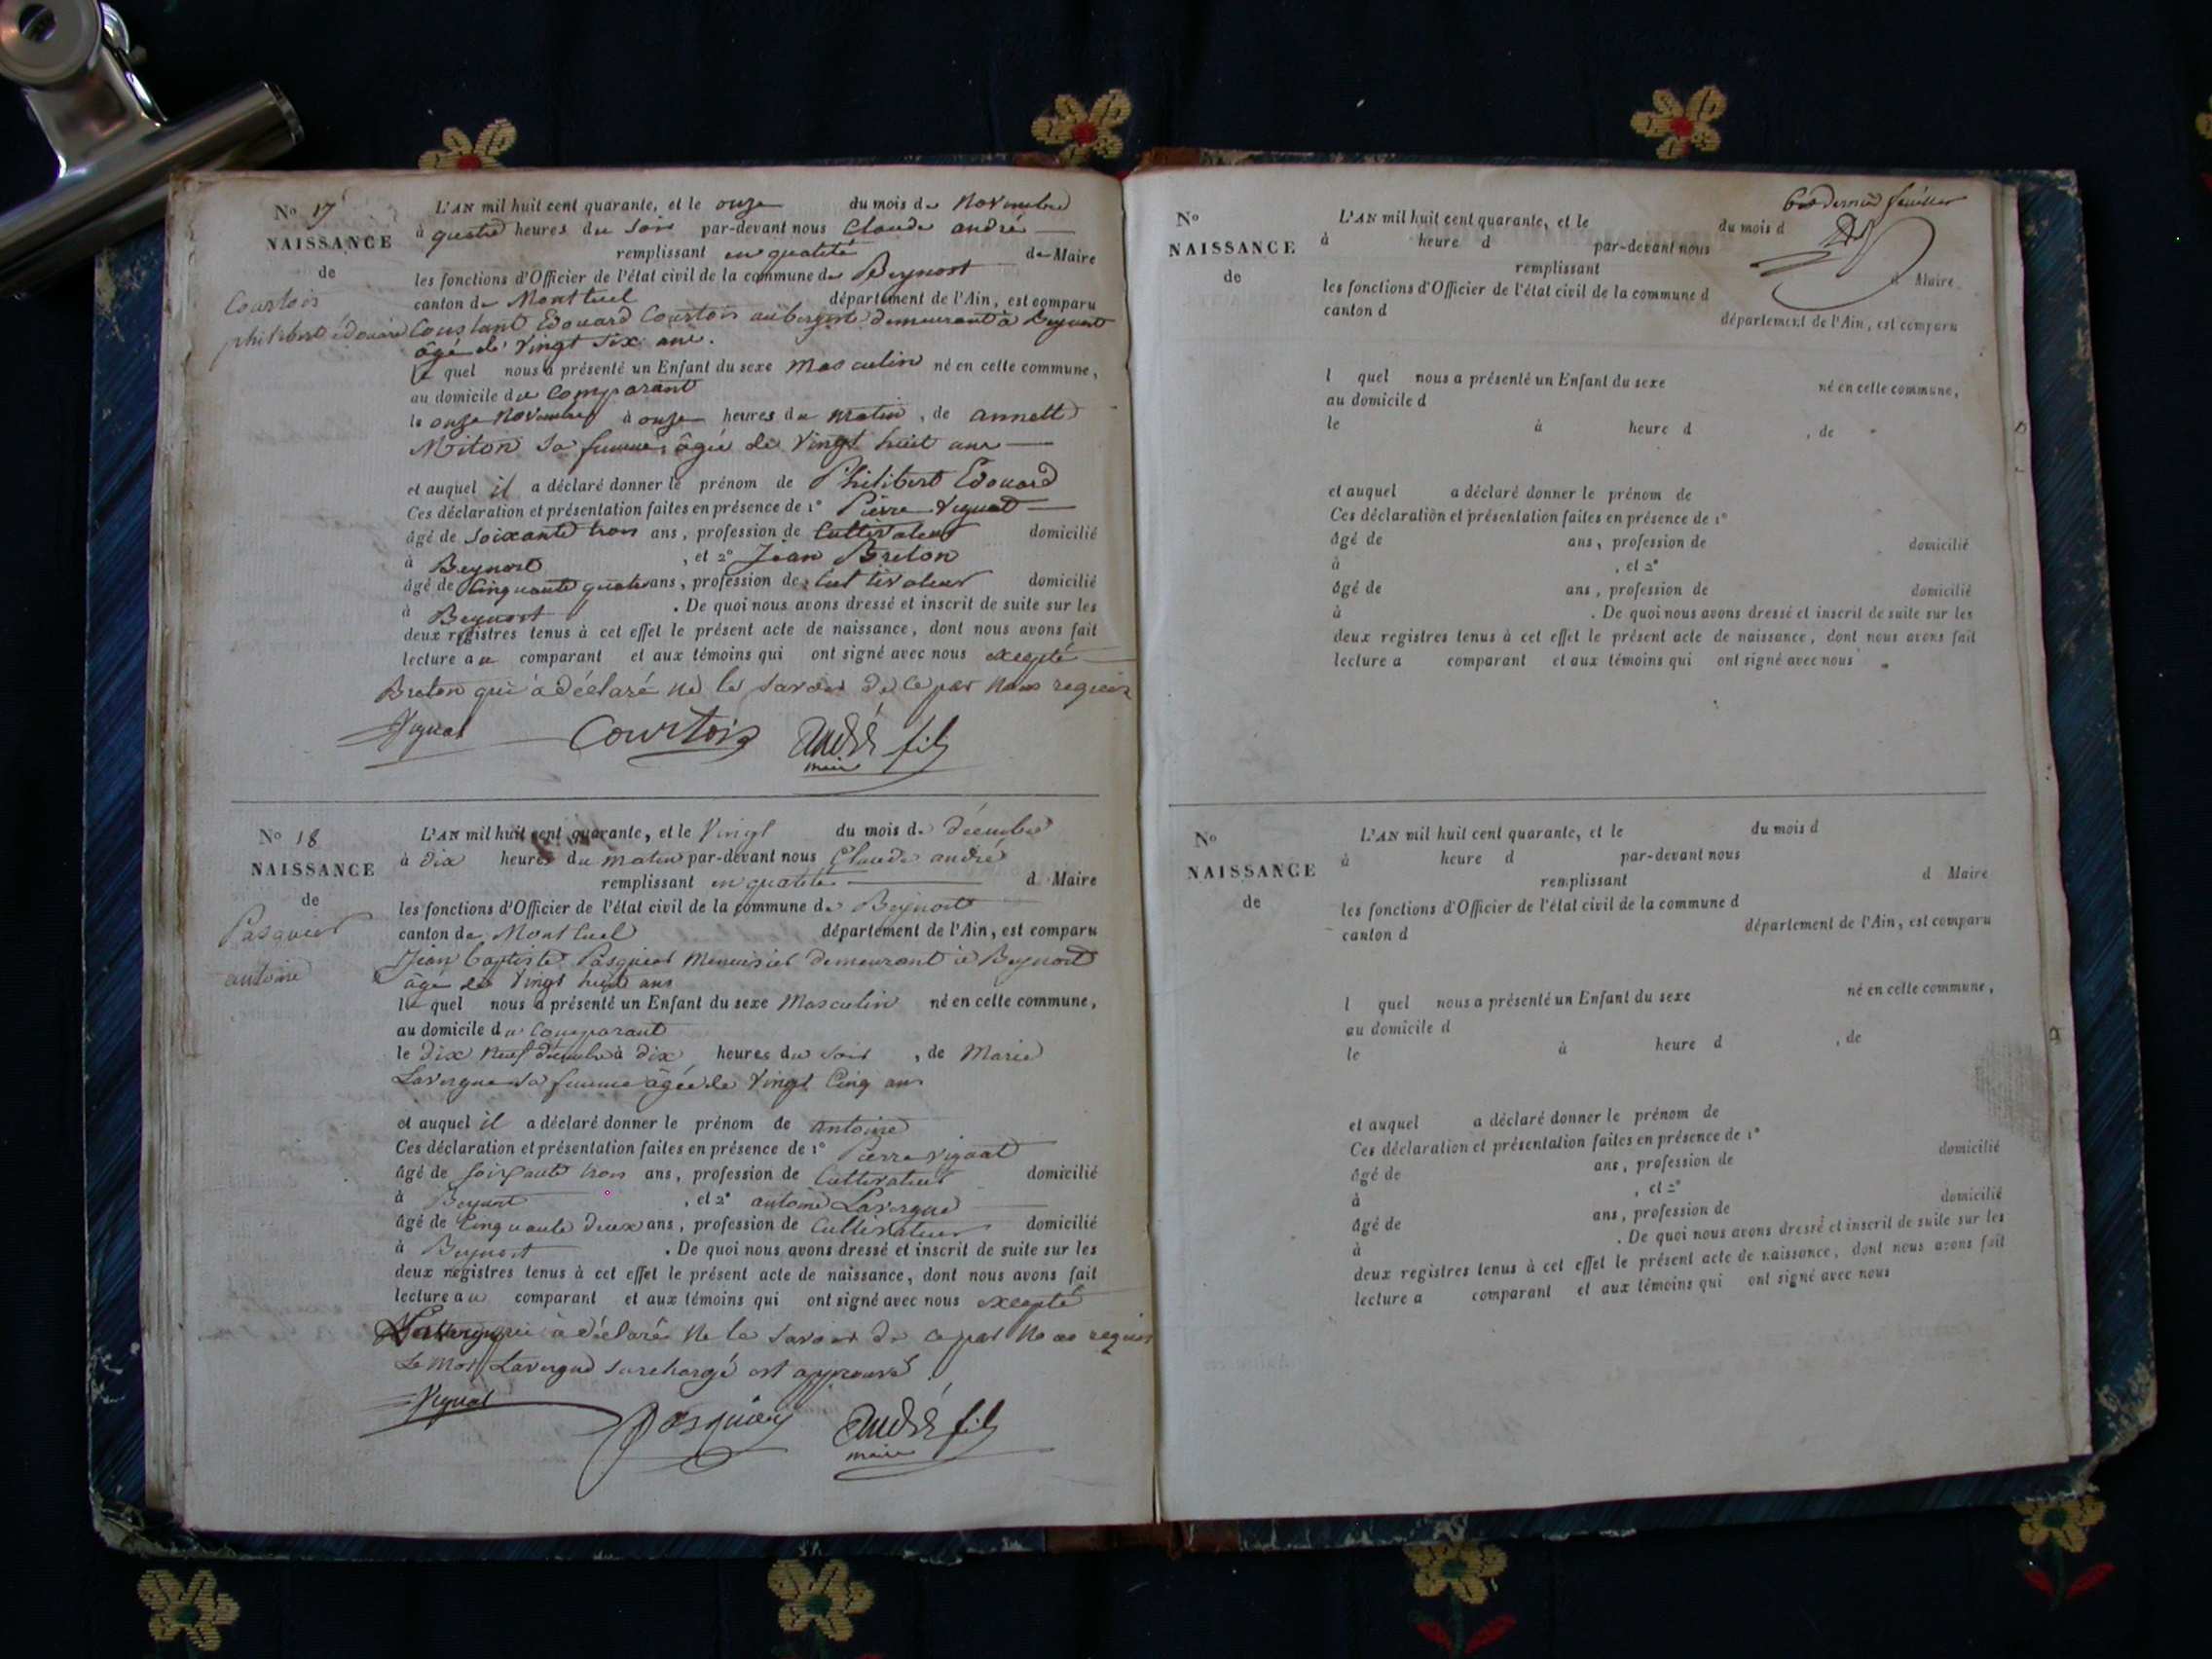 No 17
NAISSANCE
de
Courtois
philibert édouard
L'AN mil huit cent quarante, et le onze du mois de Novembre
à quatre heures du soir par-devant nous Claude andré
remplissant en qualité de Maire
les fonctions d'Officier de l'état civil de la commune de Beynost
canton de Montluel département de l'Ain, est comparu
Constant Edouard Courtois aubergiste demeurant à Beynost
âgé de vingt six ans.
le quel nous a présenté un Enfant du sexe Masculin né en cette commune,
au domicile du Comparant
le onze Novembre à onze heures du matin, de annette
Miton sa femme, âgée de Vingt huit ans
et auquel il a déclaré donner le prénom de Philibert Edouard
Ces déclaration et présentation faites en présence de 1° Pierre Vignat
âgé de soixante trois ans, profession de Cultivateur domicilié
à Beynost, et 2° Jean Breton
âgé de Cinquante quatre ans, profession de Cultivateur domicilié
à Beynost. De quoi nous avons dressé et inscrit de suite sur les
deux registres tenus à cet effet le présent acte de naissance, dont nous avons fait
lecture au comparant et aux témoins qui ont signé avec nous excepté
Breton qui a déclaré ne le savoir de ce par Nous requis
Vignat Courtois André fils
maire
No 18
NAISSANCE
de
Pasquier
antoine
L'AN mil huit cent quarante, et le Vingt du mois de décembre
à dix heures du matin par-devant nous Claude andré
remplissant en qualité d Maire
les fonctions d'Officier de l'état civil de la commune de Beynost
canton de Montluel département de l'Ain, est comparu
Jean baptiste Pasquier Menuisier demeurant à Beynost
âgé de Vingt huit ans
le quel nous a présenté un Enfant du sexe Masculin né en cette commune,
au domicile du Comparant
le dix neuf décembre à dix heures du soir, de Marie
Lavergne sa femme âgée de Vingt Cinq ans
et auquel il a déclaré donner le prénom de Antoine
Ces déclaration et présentation faites en présence de 1° Pierre Vignat
âgé de soixante trois ans, profession de Cultivateur domicilié
à Beynost, et 2° antoine Lavergne
âgé de Cinquante deux ans, profession de Cultivateur domicilié
à Beynost. De quoi nous avons dressé et inscrit de suite sur les
deux registres tenus à cet effet le présent acte de naissance, dont nous avons fait
lecture au comparant et aux témoins qui ont signé avec nous excepté
Lavergne qui a déclaré Ne le savoir de ce par Nous requis
Le Mot Lavergne surchargé est approuvé
Vignat Pasquier André fils
maire
dernier feuillet
No
NAISSANCE
de
L'AN mil huit cent quarante, et le du mois d
à heure d par-devant nous
remplissant d Maire
les fonctions d'Officier de l'état civil de la commune d
canton d département de l'Ain, est comparu
l quel nous a présenté un Enfant du sexe né en cette commune,
au domicile d
le à heure d , de
et auquel a déclaré donner le prénom de
Ces déclaration et présentation faites en présence de 1°
âgé de ans, profession de domicilié
à , et 2°
âgé de ans, profession de domicilié
à . De quoi nous avons dressé et inscrit de suite sur les
deux registres tenus à cet effet le présent acte de naissance, dont nous avons fait
lecture a comparant et aux témoins qui ont signé avec nous
No
NAISSANCE
de
L'AN mil huit cent quarante, et le du mois d
à heure d par-devant nous
remplissant d Maire
les fonctions d'Officier de l'état civil de la commune d
canton d département de l'Ain, est comparu
l quel nous a présenté un Enfant du sexe né en cette commune,
au domicile d
le à heure d , de
et auquel a déclaré donner le prénom de
Ces déclaration et présentation faites en présence de 1°
âgé de ans, profession de domicilié
à , et 2°
âgé de ans, profession de domicilié
à . De quoi nous avons dressé et inscrit de suite sur les
deux registres tenus à cet effet le présent acte de naissance, dont nous avons fait
lecture a comparant et aux témoins qui ont signé avec nous